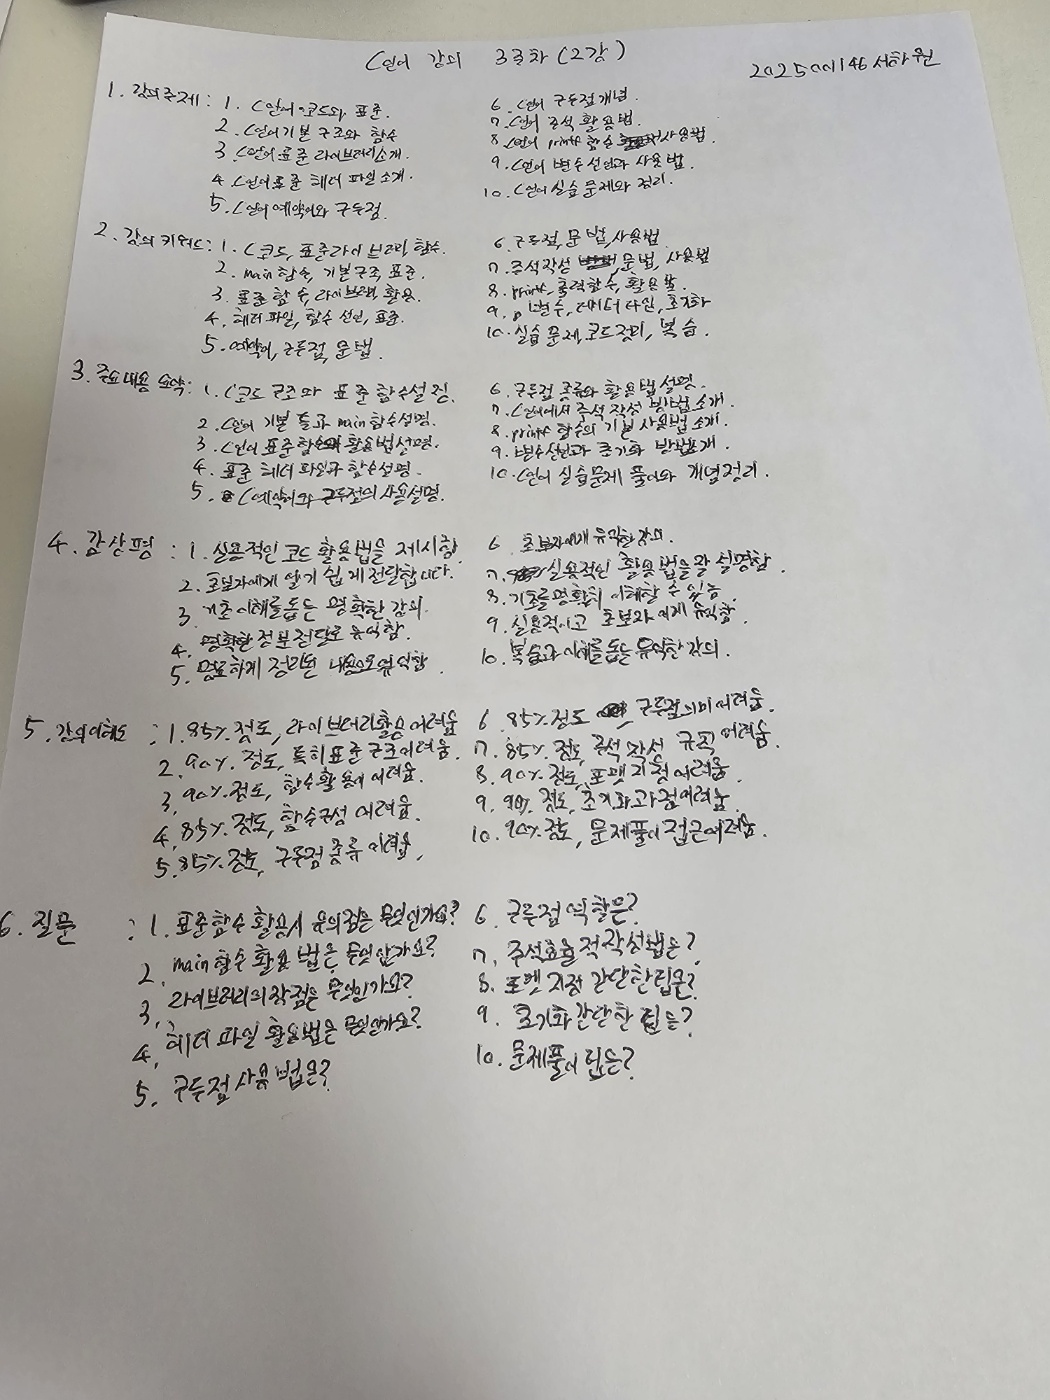 C언어 강의 3주차 (2강)
2025001146 서하원
1. 강의주제 : 1. C언어 코드와 표준.
2. C언어 기본 구조와 함수
3. C언어 표준 라이브러리소개.
4. C언어 표준 헤더 파일 소개.
5. C언어 예약어와 구두점
6. C언어 구두점 개념.
7. C언어 주석 활용법.
8. C언어 printf 함수 사용법
9. C언어 변수 선언과 사용법.
10. C언어 실습 문제와 정리.
2. 강의 키워드 : 1. C코드, 표준라이브러리, 함수.
2. main 함수, 기본구조, 표준.
3. 표준 함수, 라이브러리, 활용.
4. 헤더 파일, 함수 선언, 표준.
5. 예약어, 구두점, 문법.
6. 구두점, 문법, 사용법
7. 주석작성, 문법, 사용법
8. printf, 출력함수, 활용
9. 변수, 데이터 타입, 초기화
10. 실습 문제, 코드정리, 복습.
3. 주요내용 요약 : 1. C코드 구조와 표준 함수설명.
2. C언어 기본 틀과 main 함수설명.
3. C언어 표준 함수와 활용법설명.
4. 표준 헤더 파일과 함수설명.
5. C예약어와 구두점의 사용설명.
6. 구두점 종류와 활용법 설명.
7. C언어에서 주석 작성 방법 소개.
8. printf 함수의 기본 사용법 소개.
9. 변수선언과 초기화 방법소개.
10. C언어 실습문제 풀이와 개념정리.
4. 감상평 : 1. 실용적인 코드 활용법을 제시함.
2. 초보자에게 알기 쉽게 전달합니다.
3. 기초 이해를 돕는 명확한 강의.
4. 명확한 정보 전달로 유익함.
5. 명료하게 정리된 내용으로 유익함
6. 초보자에게 유익한 강의.
7. 실용적인 활용법을 잘 설명함
8. 기초를 명확히 이해할 수 있음
9. 실용적이고 초보자에게 유익함.
10. 복습과 이해를 돕는 유익한 강의.
5. 강의이해도 : 1. 85% 정도, 라이브러리활용 어려움
2. 90% 정도, 특히 표준 구조어려움.
3. 90% 정도, 함수활용이 어려움.
4. 85% 정도, 함수구성 어려움
5. 85% 정도, 구두점 종류 어려움.
6. 85% 정도, 구두점의미 어려움.
7. 85% 정도, 주석 작성 규칙 어려움.
8. 90% 정도, 포맷 지정 어려움.
9. 90% 정도, 초기화과정어려움.
10. 90% 정도, 문제풀이 접근어려움.
6. 질문 : 1. 표준함수 활용시 유의점은 무엇인가요?
2. main 함수 활용법은 무엇인가요?
3. 라이브러리의 장점은 무엇인가요?
4. 헤더 파일 활용법은 무엇인가요?
5. 구두점 사용법은?
6. 구두점 역할은?
7. 주석효율적작성법은?
8. 포맷 지정 간단한팁은?
9. 초기화 간단한 팁은?
10. 문제풀이 팁은?